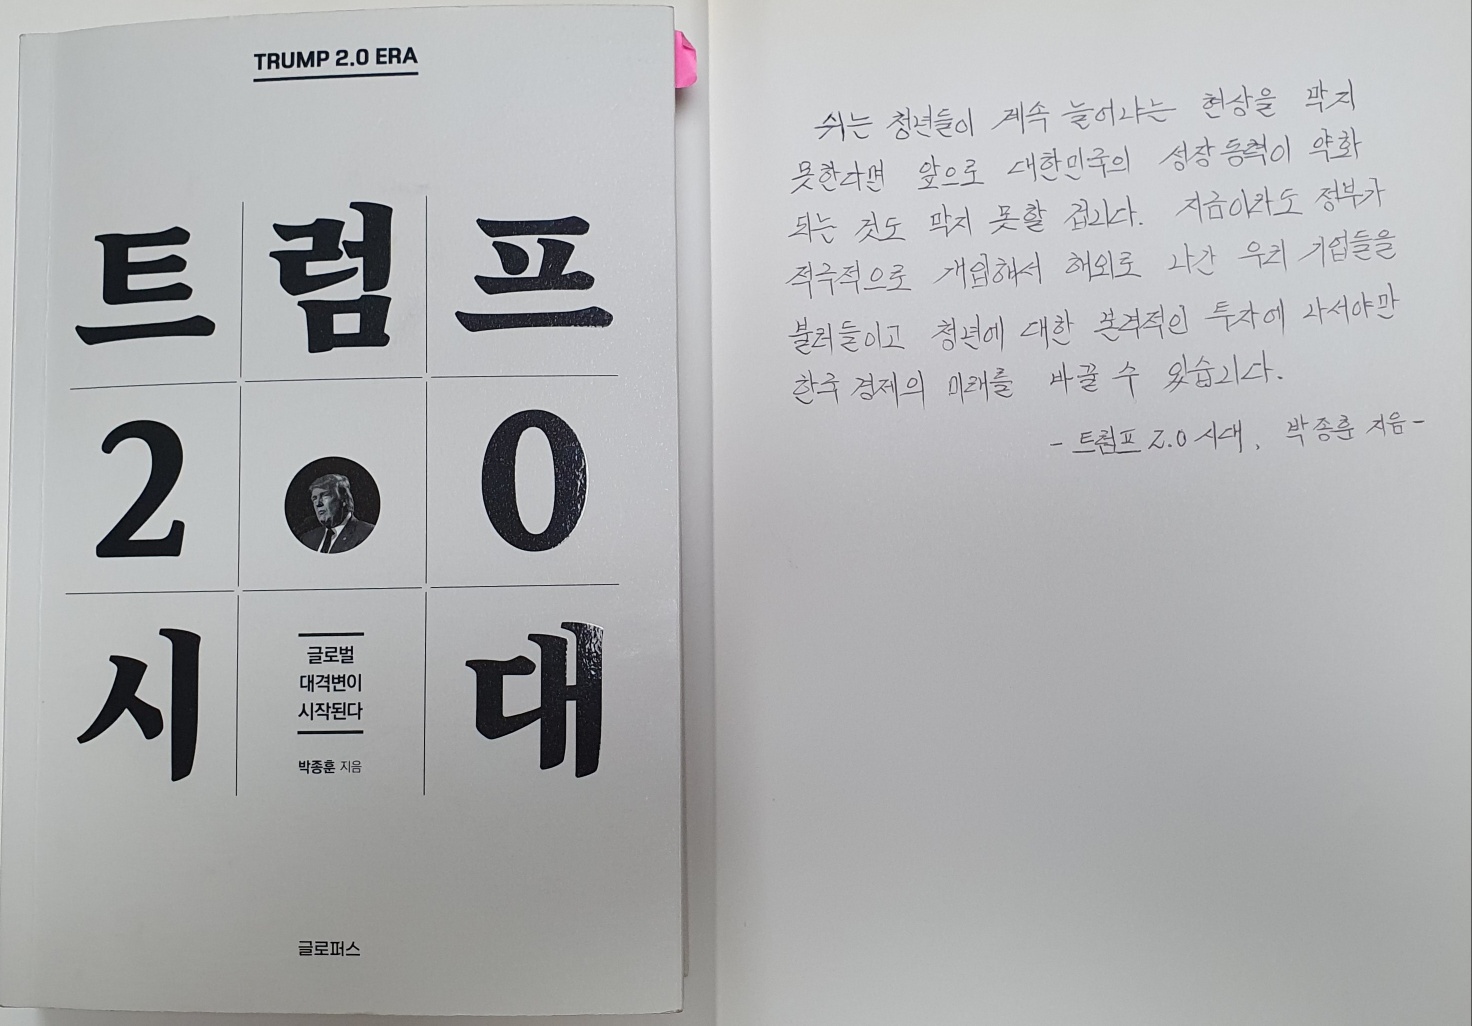 TRUMP 2.0 ERA
트럼프
2.0
시대
글로벌
대격변이
시작된다
박종훈 지음
글로퍼스
쉬는 청년들이 계속 늘어나는 현상을 막지
못한다면 앞으로 대한민국의 성장동력이 약화
되는 것도 막지 못할 겁니다. 지금이라도 정부가
적극적으로 개입해서 해외로 나간 우리 기업들을
불러들이고 청년에 대한 본격적인 투자에 나서야만
한국 경제의 미래를 바꿀 수 있습니다.
- 트럼프 2.0 시대, 박종훈 지음 -